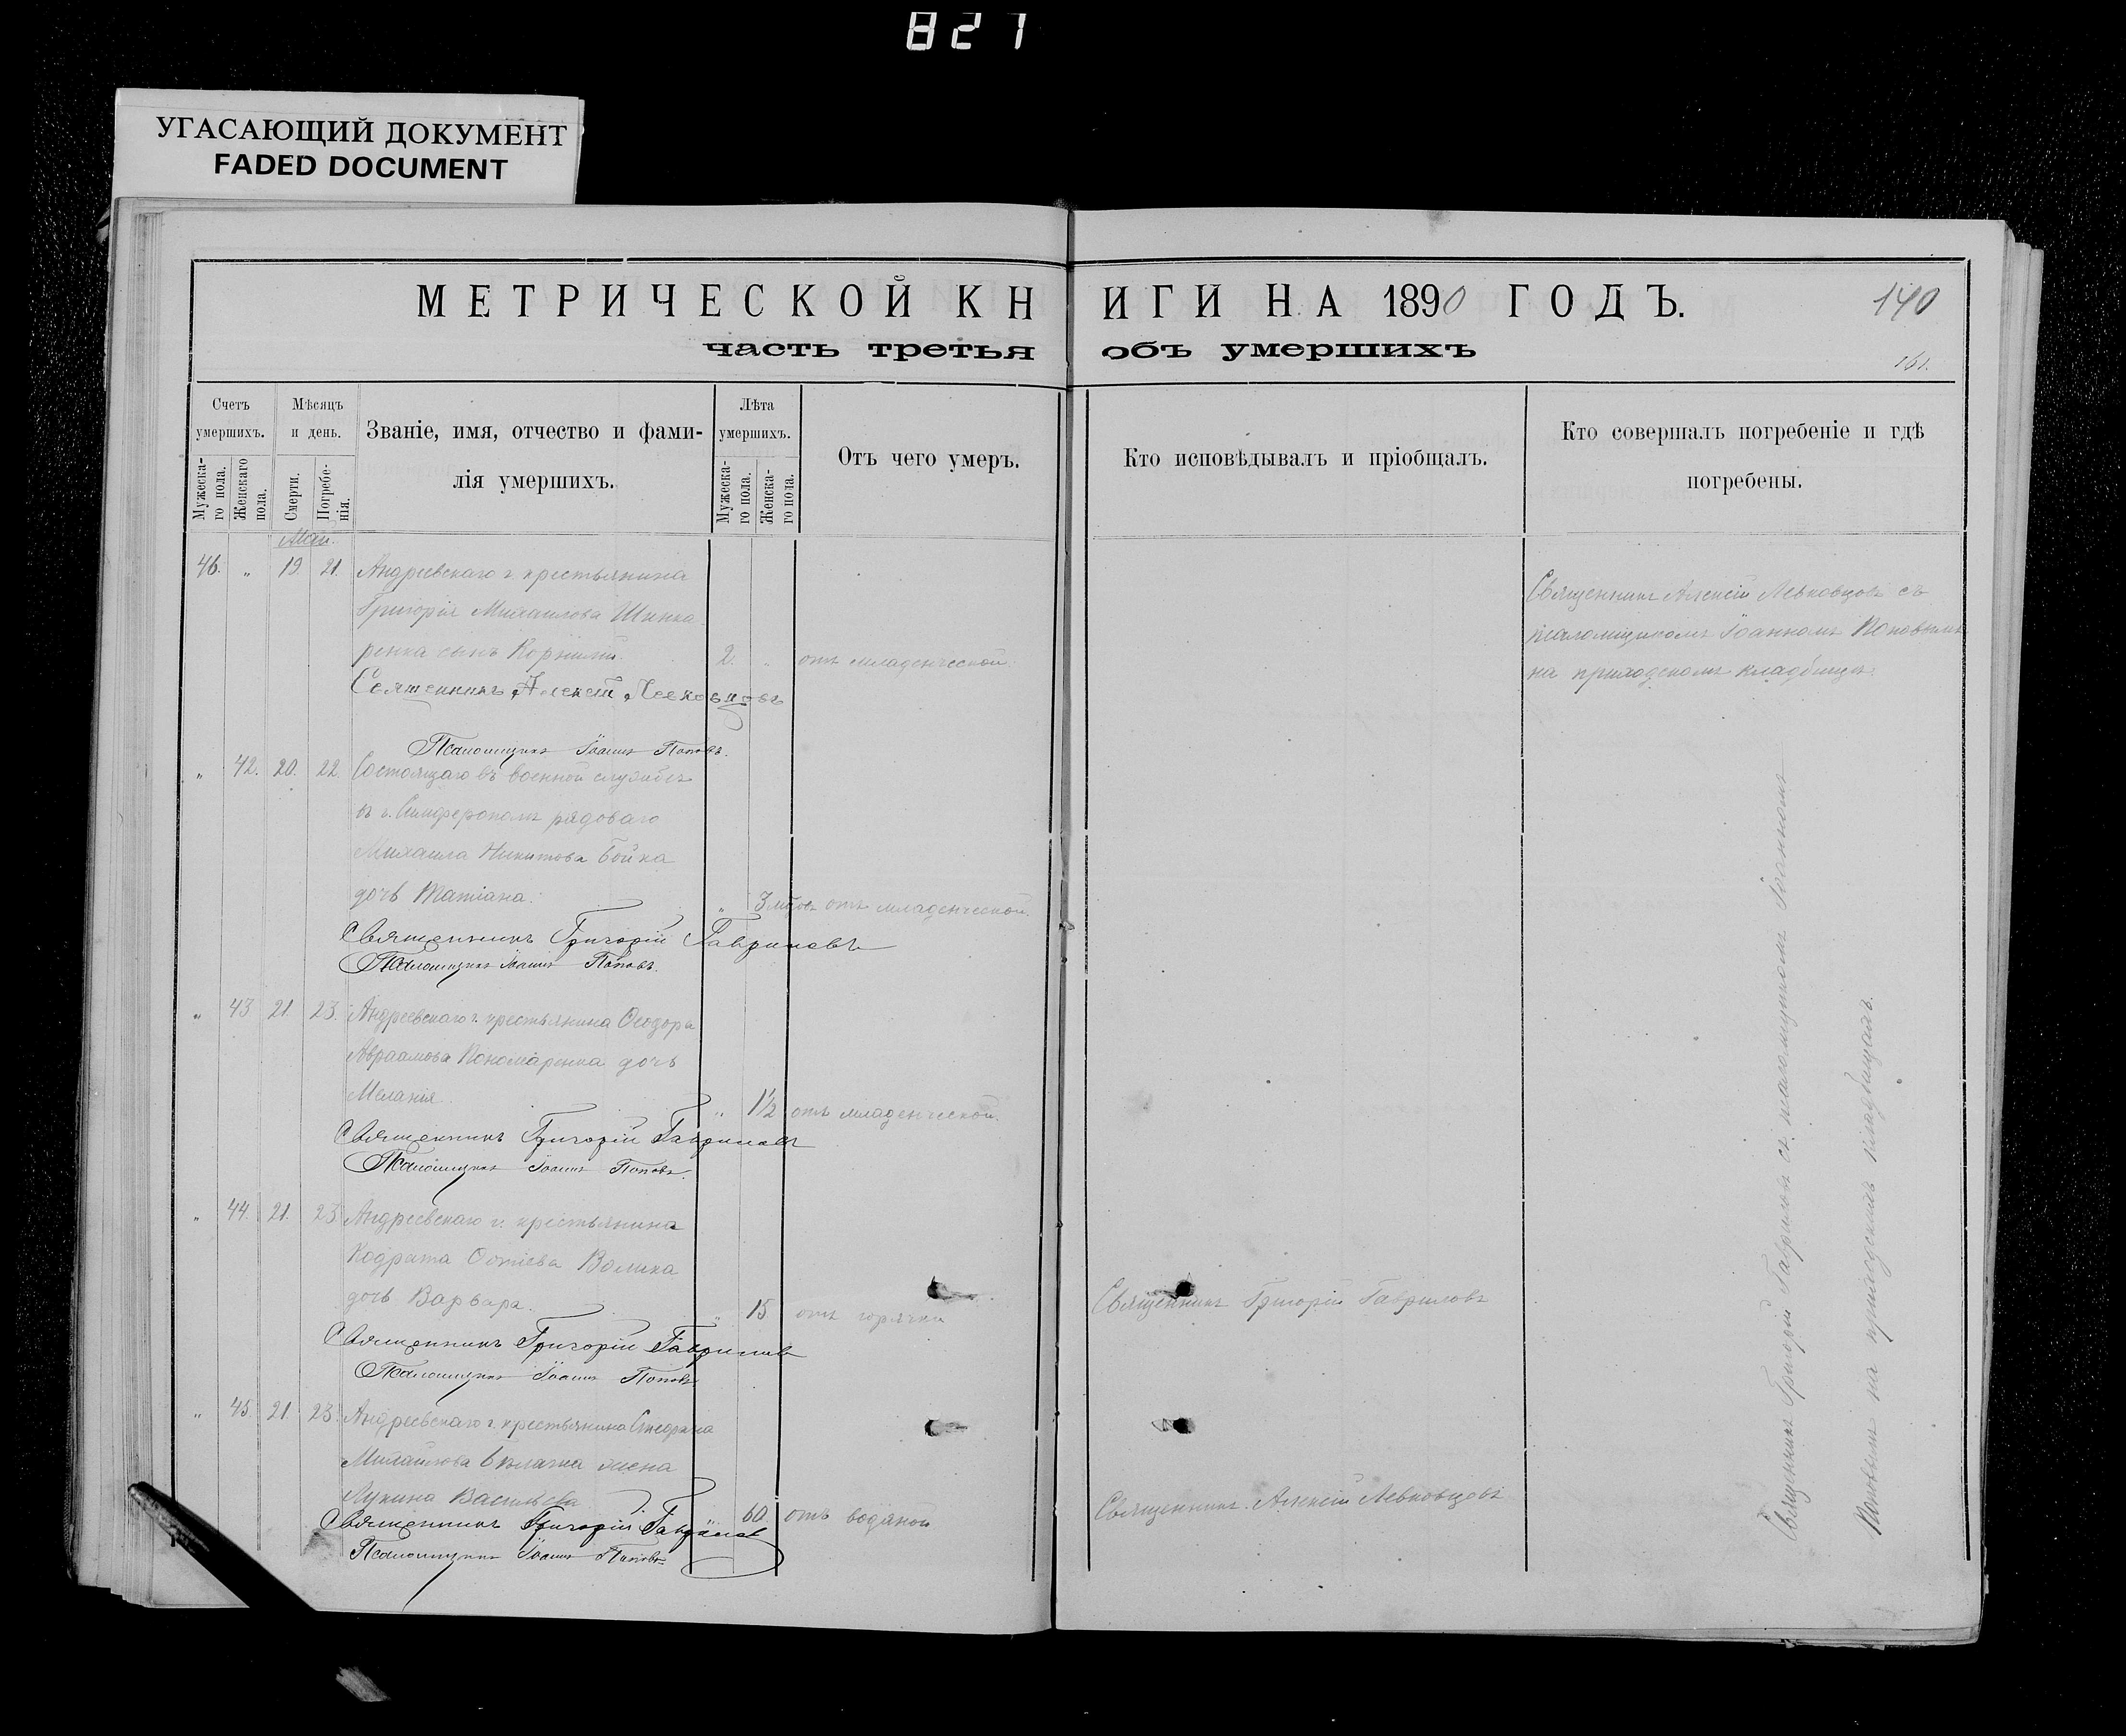 821
УГАСАЮЩИЙ ДОКУМЕНТ
FADED DOCUMENT
МЕТРИЧЕСКОЙ КНИГИ НА 1890 ГОДЪ.
140
часть третья объ умершихъ
161.
Счетъ умершихъ.
Мужескаго пола.
Женскаго пола.
Мѣсяцъ и день.
Смерти.
Погребенія.
Званіе, имя, отчество и фамилія умершихъ.
Лѣта умершихъ.
Мужескаго пола.
Женскаго пола.
Отъ чего умеръ.
Кто исповѣдывалъ и пріобщалъ.
Кто совершалъ погребеніе и гдѣ погребены.
Май.
46. " 19. 21. Андреевскаго г. крестьянина
Григорія Михаилова Шинка-
ренка сынъ Корнилій. 2. " отъ младенческой.
Священникъ Алексій Левковцовъ
Псаломщикъ Іоаннъ Поповъ.
Священникъ Алексій Левковцовъ съ
псаломщикомъ Іоанномъ Поповымъ
на приходскомъ кладбищѣ.
" 42. 20. 22. Состоящаго въ военной службѣ
въ г. Симферополѣ рядоваго
Михаила Никитова Бойка
дочь Татіана. " 3 мѣс. отъ младенческой.
Священникъ Григорій Гавриловъ
Псаломщикъ Іоаннъ Поповъ.
" 43 21. 23. Андреевскаго г. крестьянина Ѳеодора
Авраамова Пономаренка дочь
Меланія. " 1½ отъ младенческой.
Священникъ Григорій Гавриловъ
Псаломщикъ Іоаннъ Поповъ.
" 44. 21. 23 Андреевскаго г. крестьянина
Кодрата Волика
дочь Варвара. " 15 отъ горячки
Священникъ Григорій Гавриловъ
Священникъ Григорій Гавриловъ
Псаломщикъ Іоаннъ Поповъ
" 45. 21. 23. Андреевскаго г. крестьянина Стефана
Михайлова жена
Васильева " 60. отъ водяной
Священникъ Алексій Левковцовъ
Священникъ Григорій Гавриловъ
Псаломщикъ Іоаннъ Поповъ
Священникъ Григорій Гавриловъ съ псаломщикомъ Іоанномъ
Поповымъ на приходскихъ кладбищахъ.